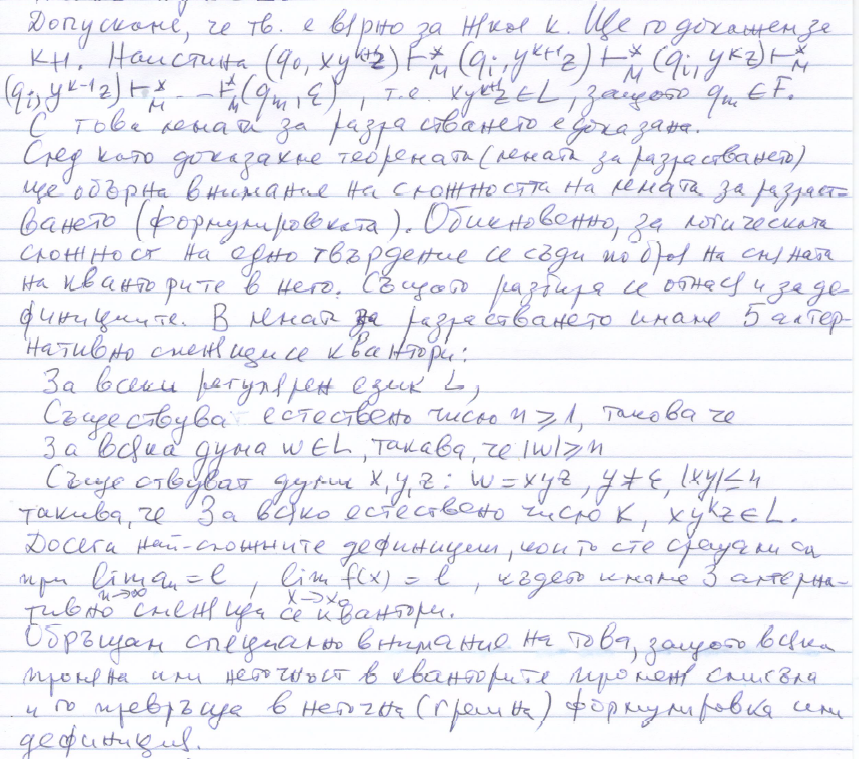 Допускаме, че тв. е вярно за някое к. Ще го докажем за
к+1. Наистина (q₀, xyᵏ⁺¹z) ⊢*ₘ (qᵢ, yᵏ⁺¹z) ⊢*ₘ (qᵢ, yᵏz) ⊢*ₘ
(qᵢ, yᵏ⁻¹z) ⊢*ₘ ... ⊢*ₘ (qₘ, ε), т.е. xyᵏ⁺¹z ∈ L, защото qₘ ∈ F.
С това лемата за разрастването е доказана.
След като доказахме теоремата (лемата за разрастването)
ще обърна внимание на сложността на лемата за разраст-
ването (формулировката). Обикновенно, за логическата
сложност на едно твърдение се съди по броя на смяната
на кванторите в него. Същото разбира се отнася и за де-
финициите. В лемата за разрастването имаме 5 алтер-
нативно сменящи се квантори:
За всеки регулярен език L,
Съществува естествено число n ⩾ 1, такова че
За всяка дума w ∈ L, такава, че |w| ⩾ n
Съществуват думи x, y, z : w = xyz, y ≠ ε, |xy| ≤ n
такива, че За всяко естествено число к, xyᵏz ∈ L.
Досега най-сложните дефиниции, които сте срещали са
при lim aₙ = l, lim f(x) = l, където имаме 3 алтерна-
n→∞ x→x₀
тивно сменящи се квантори.
Обръщам специално внимание на това, защото всяка
промяна или неточност в кванторите променя смисъла
и го превръща в неточна (грешна) формулировка или
дефиниция.